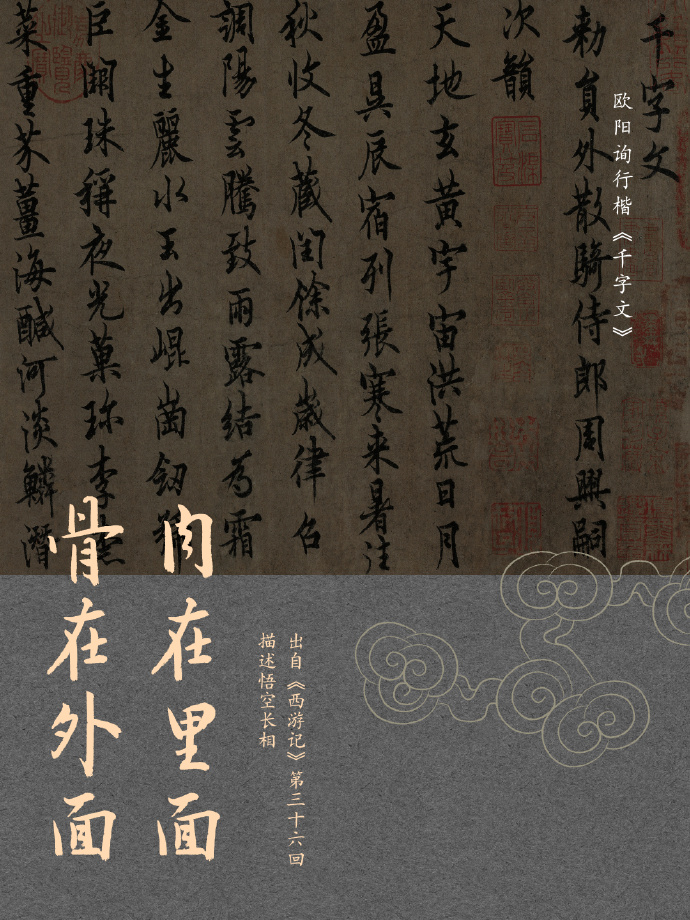 千字文
勑員外散騎侍郎周興嗣
次韻
天地玄黃宇宙洪荒日月
盈昃辰宿列張寒来暑往
秋收冬藏閏餘成歲律吕
調陽雲騰致雨露結為霜
金生麗水玉出崐崗釼號
巨闕珠稱夜光菓珎李柰
菜重芥薑海醎河淡鱗潛
欧阳询行楷《千字文》
肉在里面
骨在外面
出自《西游记》第三十六回
描述悟空长相